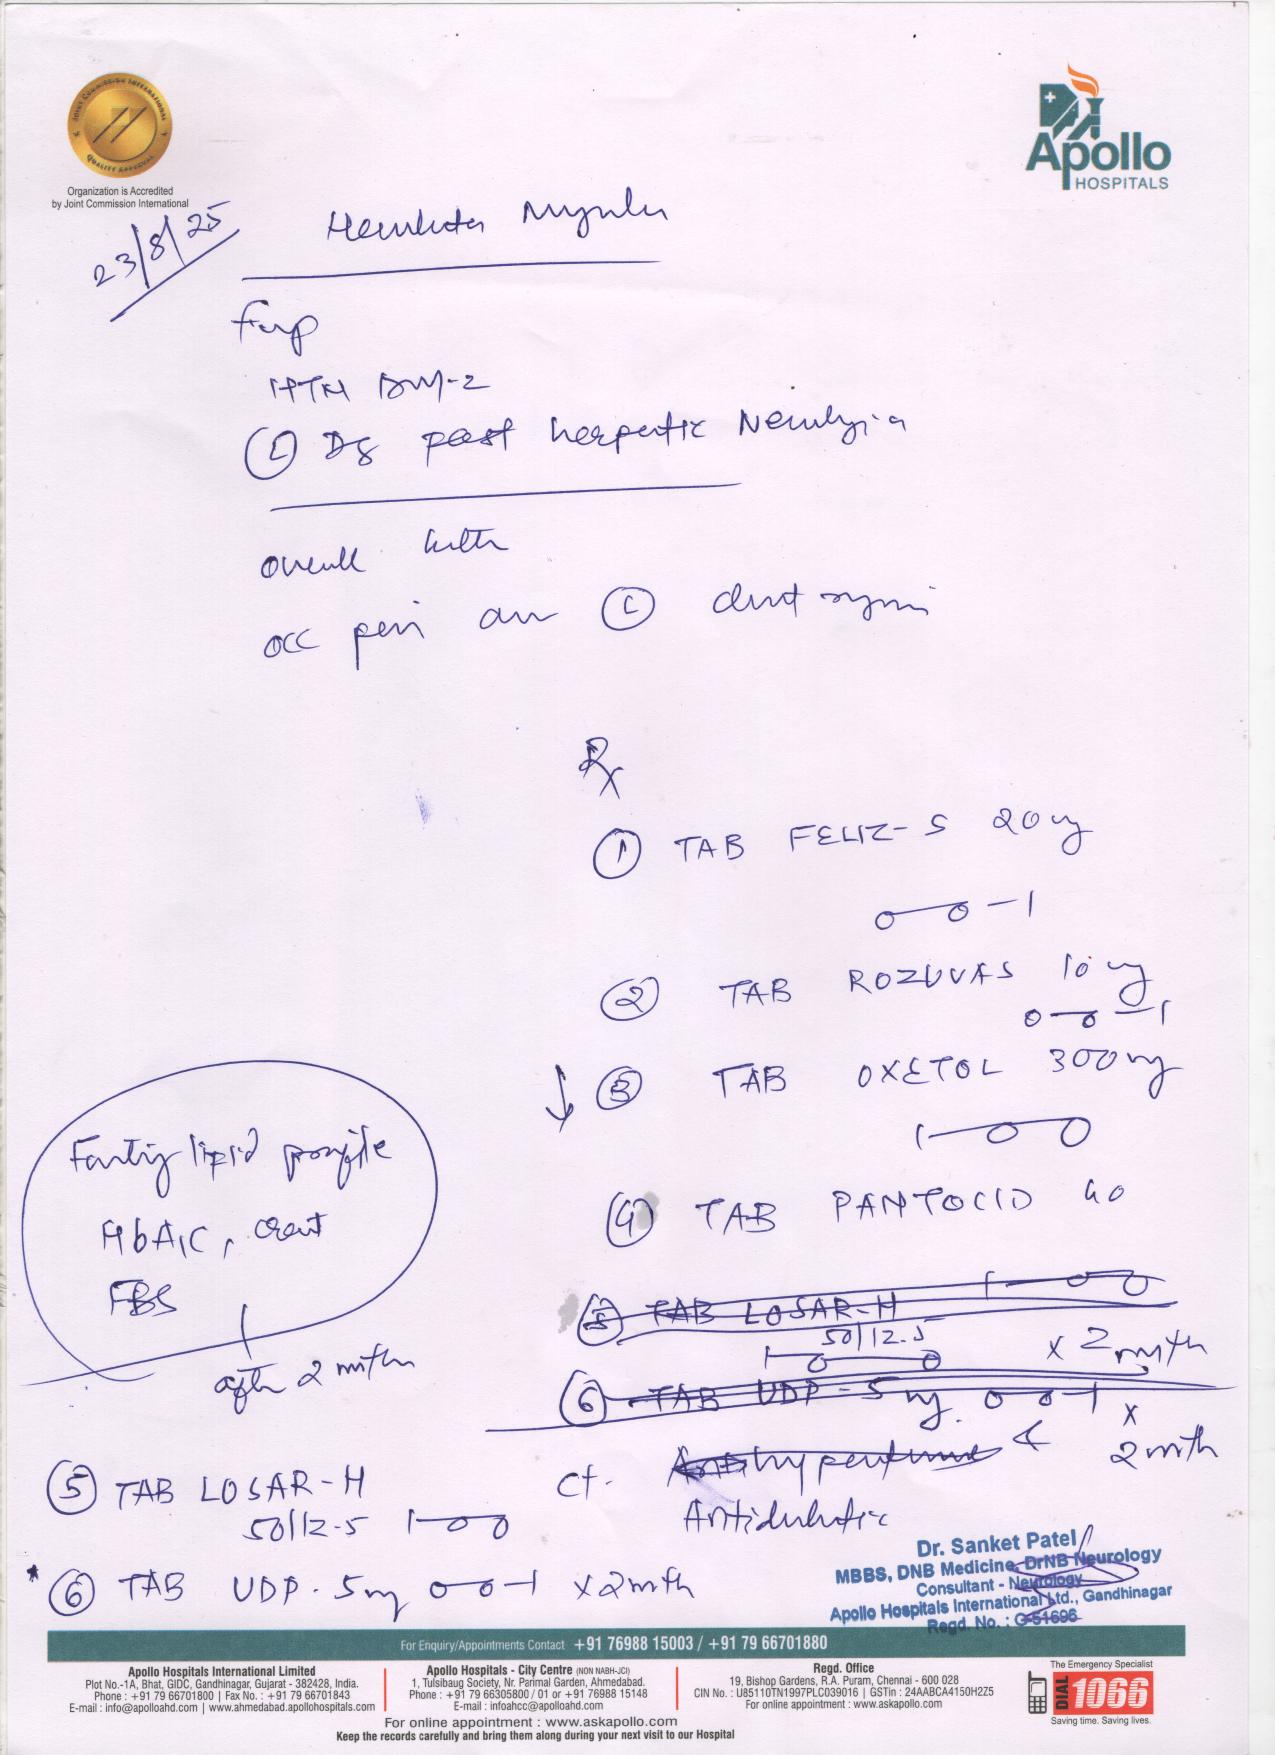 JOINT COMMISSION INTERNATIONAL
QUALITY APPROVAL
Organization is Accredited
by Joint Commission International
Apollo
HOSPITALS
23/8/25
HTN DM-2
Ⓛ D8 post herpetic Neuralgia
overall better
occ pain
Rx
① TAB FELIZ-S 20mg
0-0-1
② TAB ROZUVAS 10mg
0-0-1
↓ ③ TAB OXETOL 300mg
1-0-0
④ TAB PANTOCID 40
1-0-0
Fasting lipid profile
HbA1C, creat
FBS
after 2 mth
5 TAB LOSAR-H
50/12.5
1-0-0 x 2 mth
⑥ TAB UDP-5mg. 0-0-1 x
2 mth
ct. Antihypertensive &
Antidiabetic
⑤ TAB LOSAR-H
50/12.5 1-0-0
⑥ TAB UDP-5mg 0-0-1 x 2 mth
Dr. Sanket Patel
MBBS, DNB Medicine, DrNB Neurology
Consultant - Neurology
Apollo Hospitals International Ltd., Gandhinagar
Regd. No. : G-51696
For Enquiry/Appointments Contact +91 76988 15003 / +91 79 66701880
Apollo Hospitals International Limited
Plot No.-1A, Bhat, GIDC, Gandhinagar, Gujarat - 382428, India.
Phone : +91 79 66701800 | Fax No. : +91 79 66701843
E-mail : info@apolloahd.com | www.ahmedabad.apollohospitals.com
Apollo Hospitals - City Centre (NON NABH-JCI)
1, Tulsibaug Society, Nr. Parimal Garden, Ahmedabad.
Phone : +91 79 66305800 / 01 or +91 76988 15148
E-mail : infoahcc@apolloahd.com
Regd. Office
19, Bishop Gardens, R.A. Puram, Chennai - 600 028
CIN No. : U85110TN1997PLC039016 | GSTin : 24AABCA4150H2Z5
For online appointment : www.askapollo.com
The Emergency Specialist
DIAL 1066
Saving time. Saving lives.
For online appointment : www.askapollo.com
Keep the records carefully and bring them along during your next visit to our Hospital